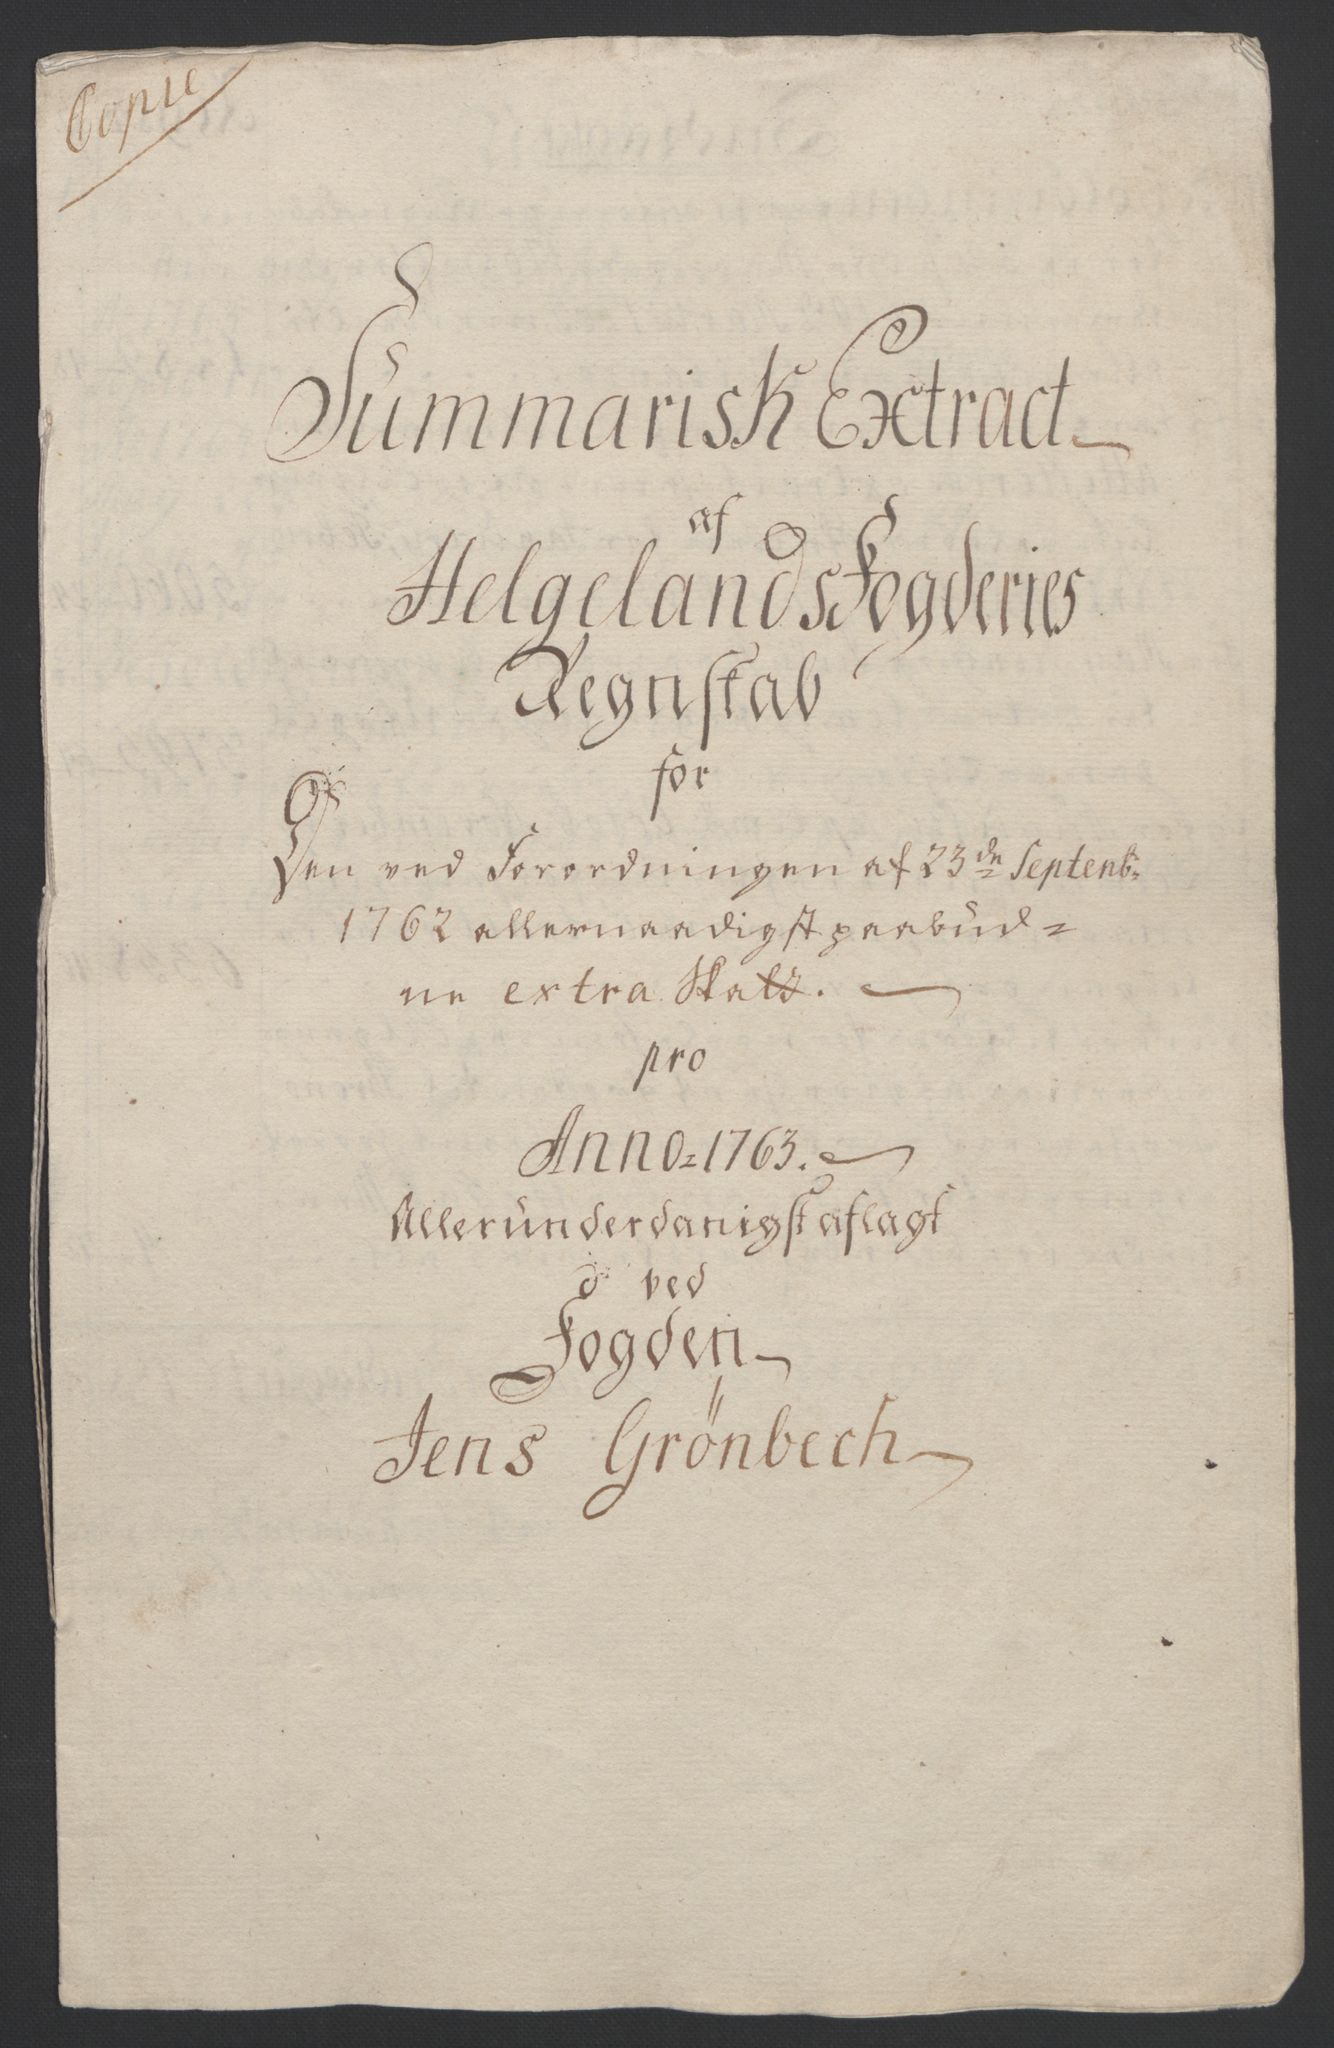 Copie
Summarisk Extract
af
Helgelands Fogderies
Regnskab
for
Den ved Forordningen af 23de Septenb:
1762 allernaadigst paabud=
ne extra Skatt.
pro
Anno 1763.
Alleründerdanigst aflagt
ved
Fogden
Jens Grönbech